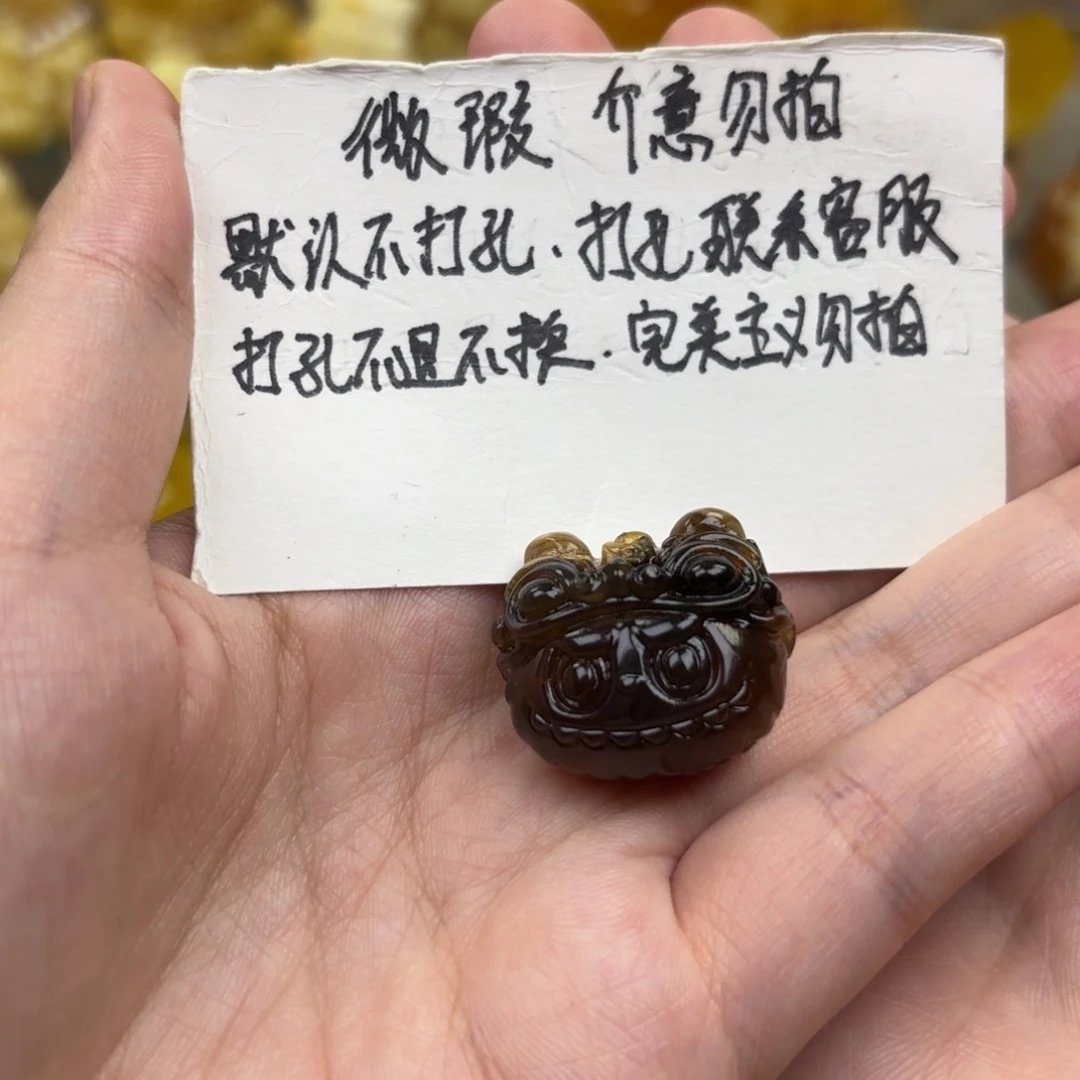 微瑕 介意勿拍
默认不打孔.打孔联系客服
打孔不退不换.完美主义勿拍